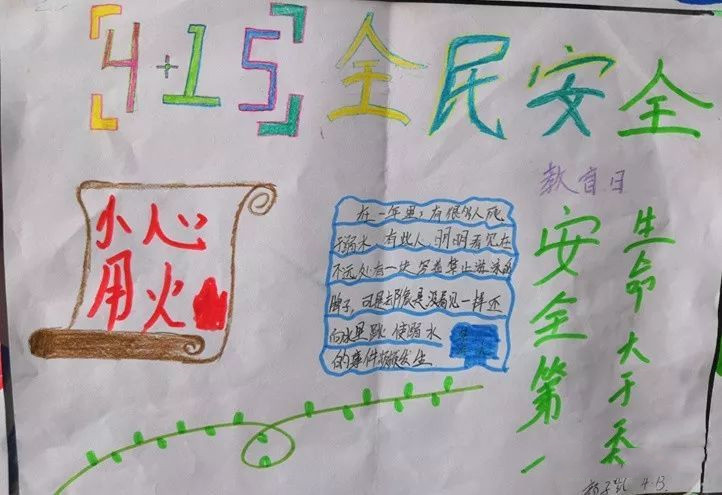 4+15 全民安全
教育日
小心
用火
在一年里,有很多人死
于溺水 有些人 明明看见在
不远处有一块 写着禁止游泳的
牌子,可是却像是没看见一样还
向水里跳 使溺水
的事件频频发生
安全第一
生命大于天
4.13.